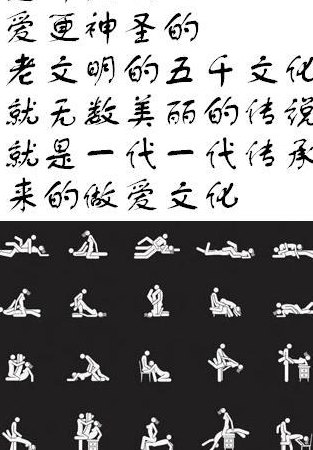 爱更神圣的
老文明的五千文化
就无数美丽的传说
就是一代一代传承
来的做爱文化